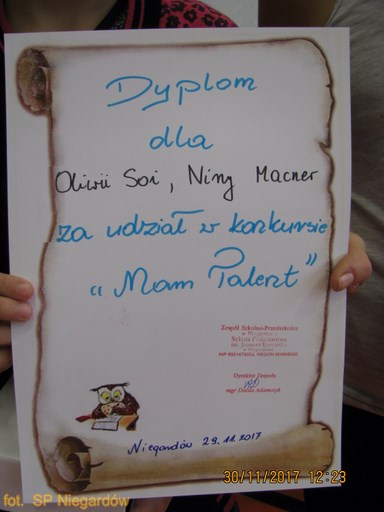 Dyplom
dla
Oliwii Soi, Niny Macner
za udział w konkursie
"Mam Talent"
Zespół Szkolno-Przedszkolny
w Niegardowie
Szkoła Podstawowa
Dyrektor Zespołu
mgr Dorota Adamczyk
Niegardów 29.11.2017
30/11/2017 12:23
fot. SP Niegardów